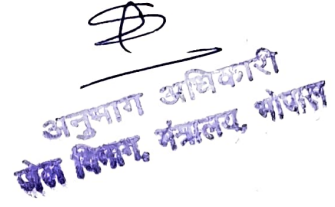 अनुभाग अधिकारी
जेल विभाग, मंत्रालय, भोपाल